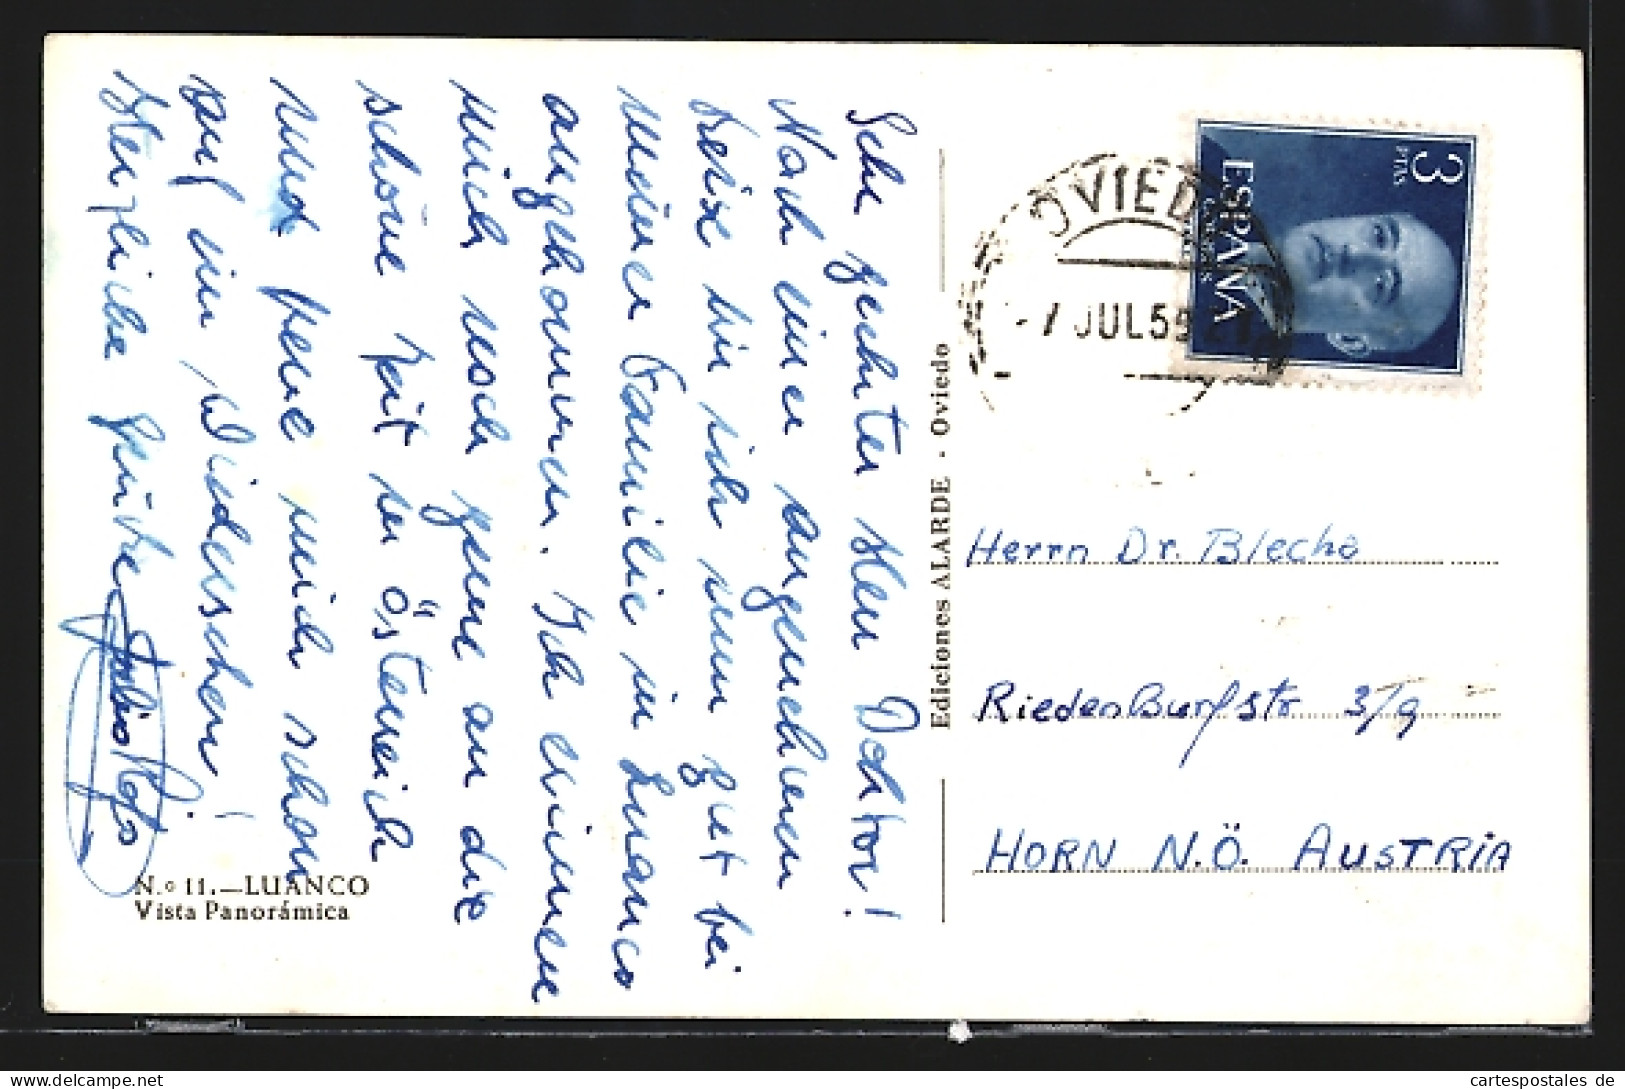 Sehr geehrter Herr Doktor!
Nach einer angenehmen
Reise bin ich nun gut bei
meiner Familie in Luanco
angekommen. Ich erinnere
mich noch gerne an die
schöne Zeit in Österreich
und freue mich schon
auf ein Wiedersehen!
Herzliche Grüße
Julio
N.º 11.—LUANCO
Vista Panorámica
Ediciones ALARDE - Oviedo
OVIEDO
-7 JUL 59
3
PTAS
ESPAÑA
CORREOS
Herrn Dr. Blecha
RiedenBurgstr 3/9
HORN N.Ö. AUSTRIA
cartespostales de